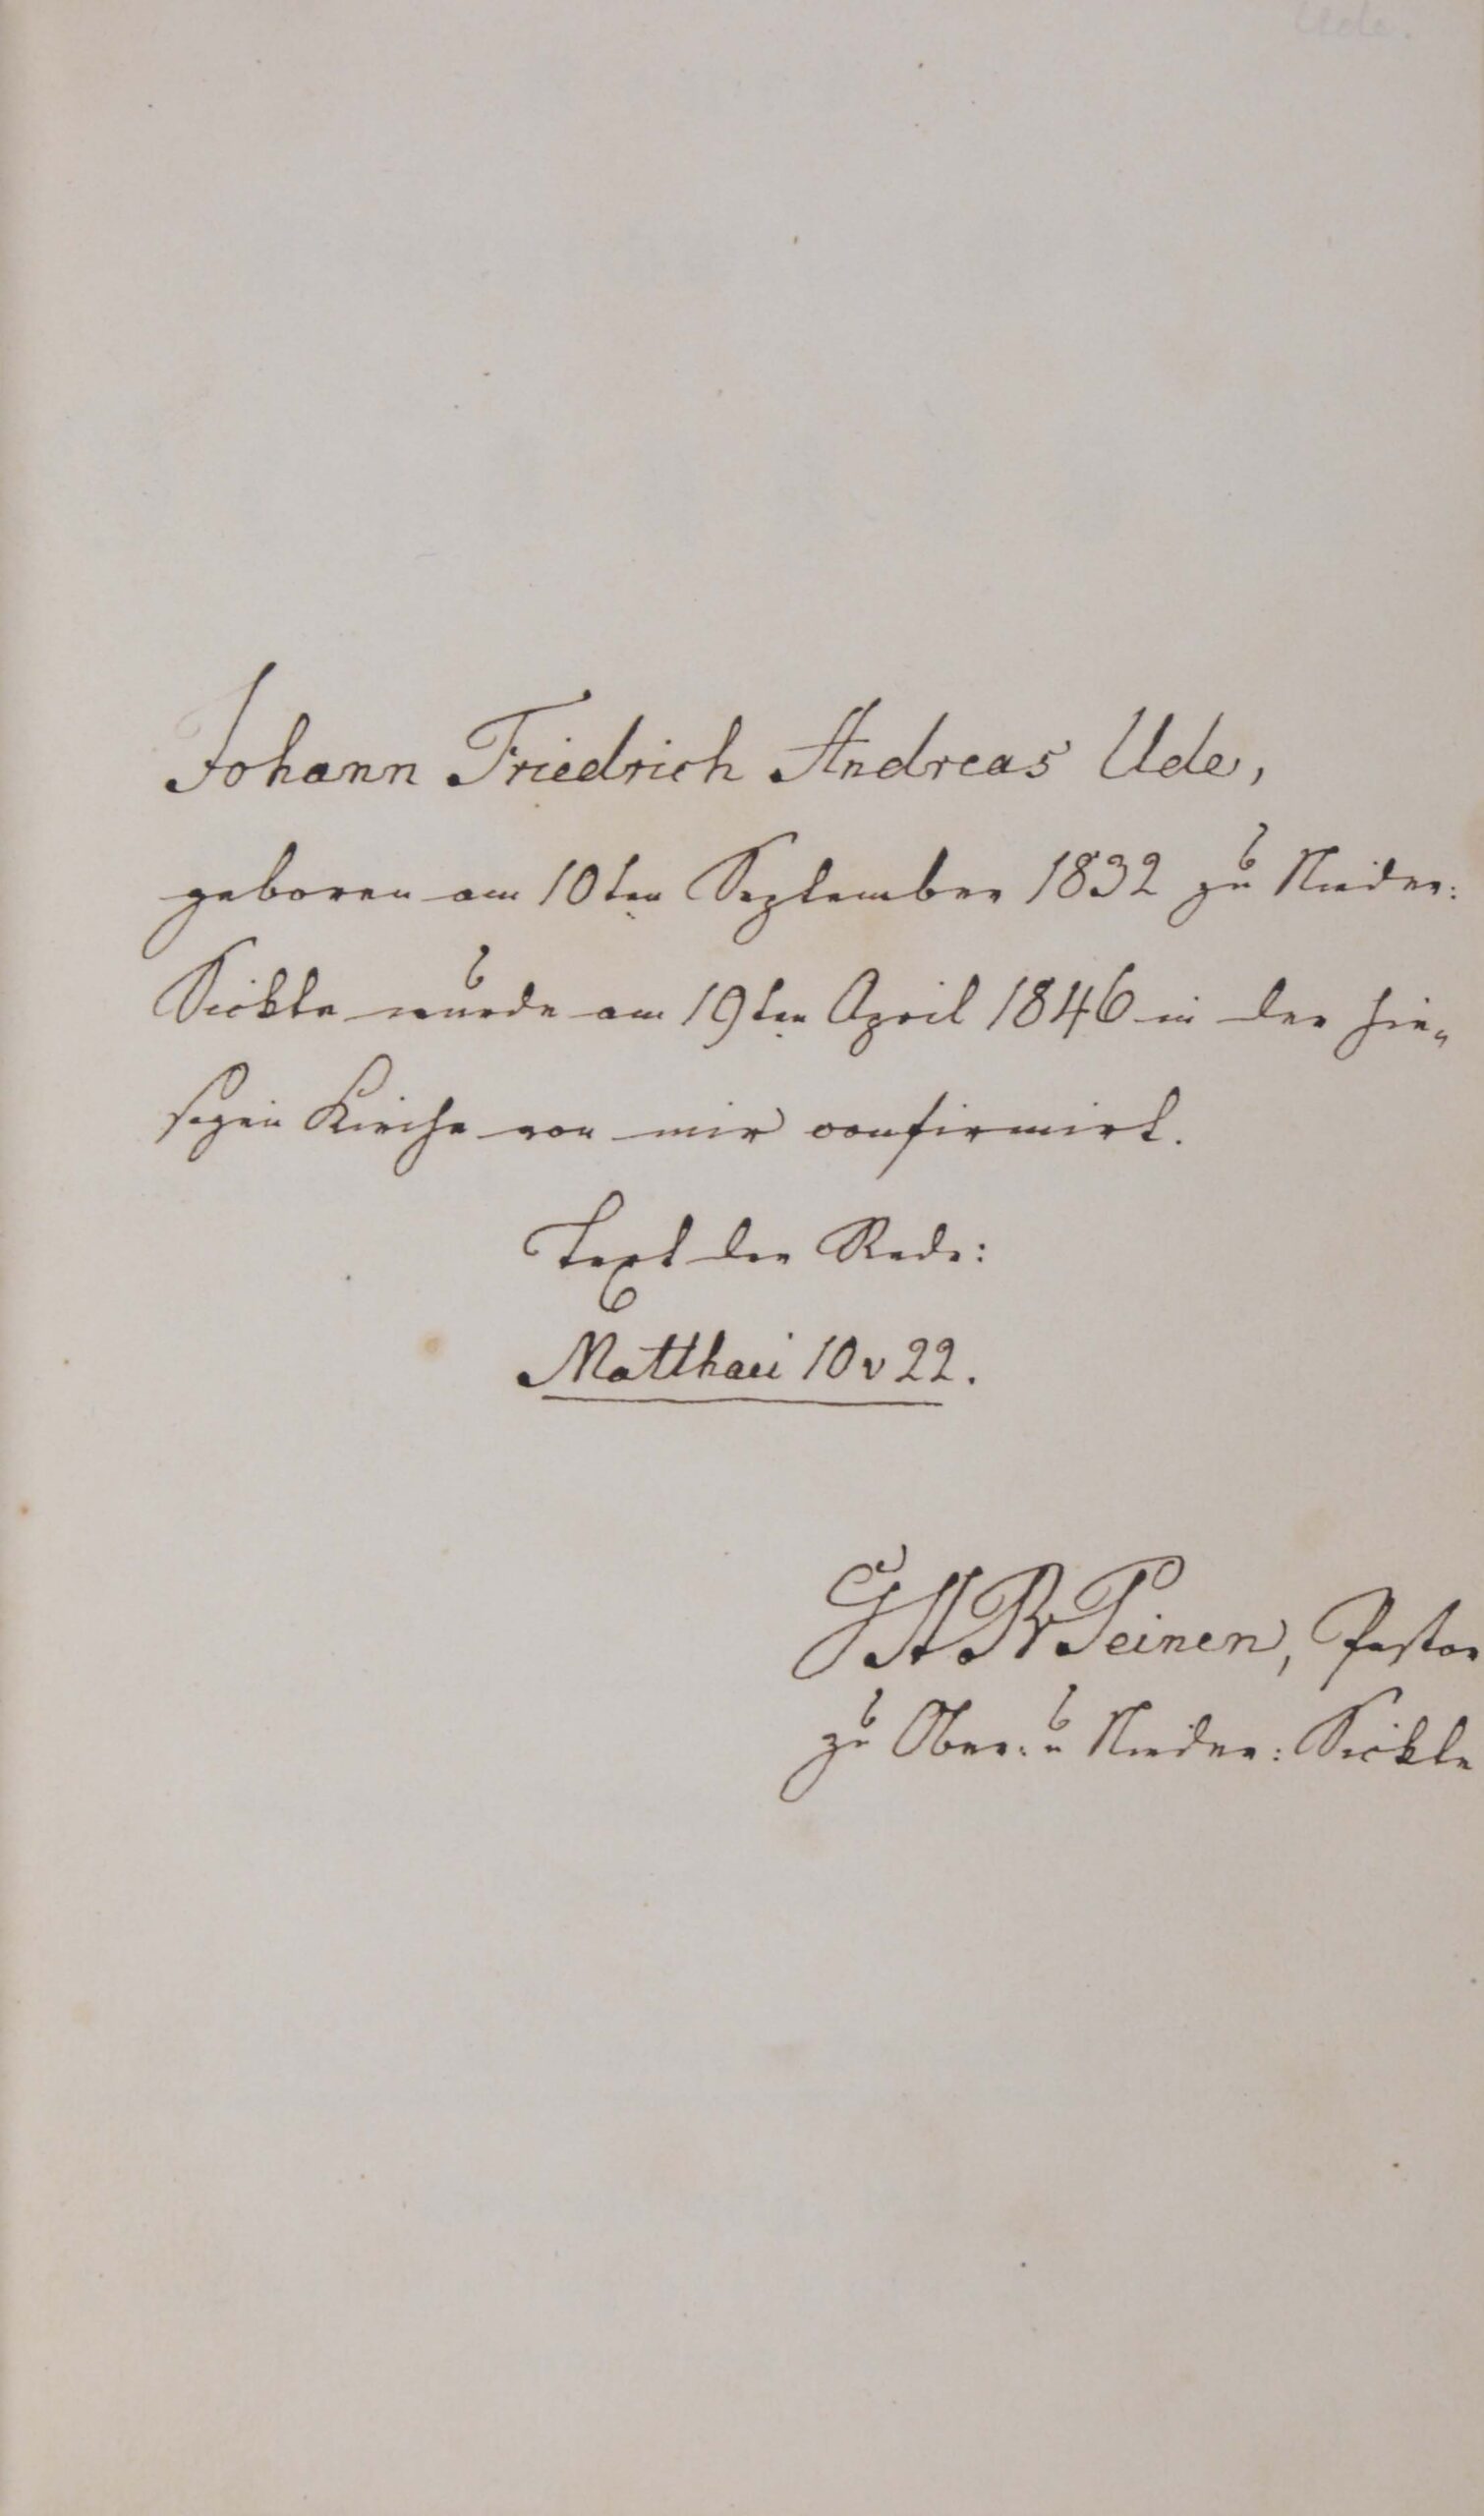 Ude.
Johann Friedrich Andreas Ude,
geboren am 10ten September 1832 zu Nieder:
Sickte wurde am 19ten April 1846 in der hie„
sigen Kirche von mir confirmirt.
Text der Rede:
Matthaei 10 v 22.
Peinen, Pastor
zu Ober: u Nieder: Sickte